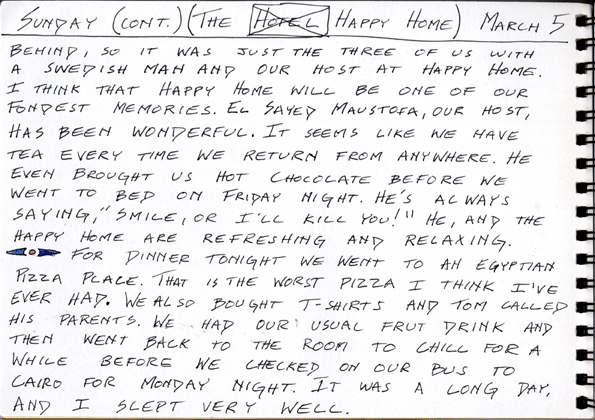 SUNDAY (CONT.) (THE HOTEL HAPPY HOME) MARCH 5
BEHIND, SO IT WAS JUST THE THREE OF US WITH
A SWEDISH MAN AND OUR HOST AT HAPPY HOME.
I THINK THAT HAPPY HOME WILL BE ONE OF OUR
FONDEST MEMORIES. EL SAYED MAUSTOFA, OUR HOST,
HAS BEEN WONDERFUL. IT SEEMS LIKE WE HAVE
TEA EVERY TIME WE RETURN FROM ANYWHERE. HE
EVEN BROUGHT US HOT CHOCOLATE BEFORE WE
WENT TO BED ON FRIDAY NIGHT. HE'S ALWAYS
SAYING, "SMILE, OR I'LL KILL YOU!" HE, AND THE
HAPPY HOME ARE REFRESHING AND RELAXING.
FOR DINNER TONIGHT WE WENT TO AN EGYPTIAN
PIZZA PLACE. THAT IS THE WORST PIZZA I THINK I'VE
EVER HAD. WE ALSO BOUGHT T-SHIRTS AND TOM CALLED
HIS PARENTS. WE HAD OUR USUAL FRUT DRINK AND
THEN WENT BACK TO THE ROOM TO CHILL FOR A
WHILE BEFORE WE CHECKED ON OUR BUS TO
CAIRO FOR MONDAY NIGHT. IT WAS A LONG DAY,
AND I SLEPT VERY WELL.